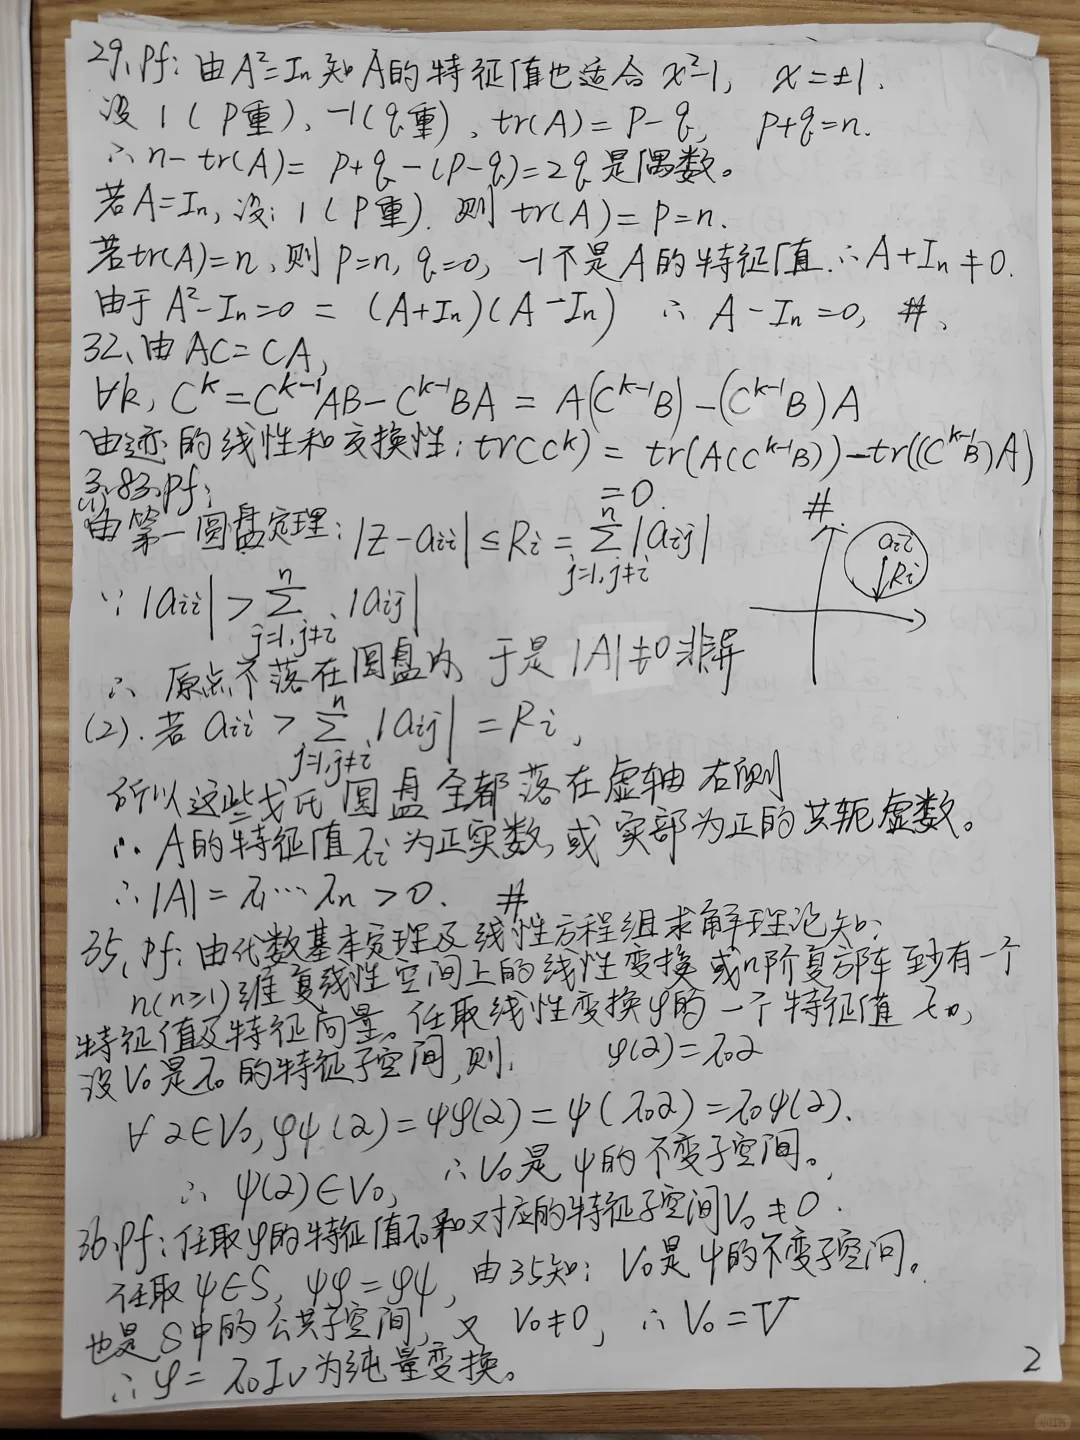 29、pf：由A²=In知A的特征值也适合x²-1， x=±1．
设1（p重）、-1（q重），tr(A)=p-q， p+q=n．
∴n-tr(A)=p+q-(p-q)=2q是偶数。
若A=In，设：1（p重）．则tr(A)=p=n．
若tr(A)=n，则p=n，q=0，-1不是A的特征值．∴A+In≠0．
由于A²-In=0=(A+In)(A-In) ∴A-In=0，#、
32、由AC=CA，
∀k，C^k=C^{k-1}AB-C^{k-1}BA=A(C^{k-1}B)-(C^{k-1}B)A
由迹的线性和交换性：tr(C^k)=tr(A(C^{k-1}B))-tr((C^{k-1}B)A)
=0． #
3.83．pf：
(1) 由第一圆盘定理：|z-aii|≤Ri=∑_{j=1,j≠i}^{n}|aij|
aii
Ri
∵|aii|>∑_{j=1,j≠i}^{n}|aij|
∴原点不落在圆盘内，于是|A|≠0非异
(2)．若aii>∑_{j=1,j≠i}^{n}|aij|=Ri，
所以这些戈氏圆盘全都落在虚轴右侧
∴A的特征值λi为正实数，或实部为正的共轭虚数。
∴|A|=λ1⋯λn>0． #
35、pf：由代数基本定理及线性方程组求解理论知：
n(n≥1)维复线性空间上的线性变换或n阶复方阵至少有一个
特征值及特征向量。任取线性变换φ的一个特征值λ0，
设V0是λ0的特征子空间，则． φ(α)=λ0α
∀α∈V0，φψ(α)=ψφ(α)=ψ(λ0α)=λ0ψ(α)．
∴ψ(α)∈V0， ∴V0是ψ的不变子空间。
36、pf：任取φ的特征值λ0和对应的特征子空间V0≠0．
任取ψ∈S，ψφ=φψ，由35知：V0是ψ的不变子空间。
也是S中的公共子空间，又V0≠0，∴V0=V
∴φ=λ0Iv为纯量变换。
2
小红书